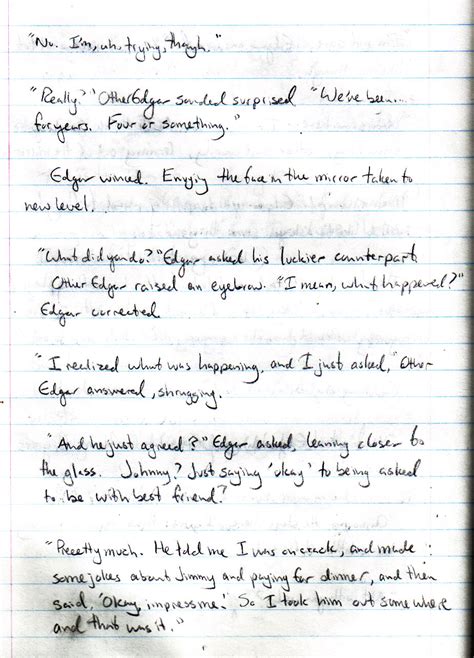 "No. I'm, uh, trying, though."
"Really?" OtherEdgar sounded surprised "We've been...
for years. Four or something."
Edgar winced. Envying the face in the mirror taken to
new level.
"What did you do?" Edgar asked his luckier counterpart
Other Edgar raised an eyebrow. "I mean, what happened?"
Edgar corrected
"I realized what was happening, and I just asked," Other
Edgar answered, shrugging.
"And he just agreed?" Edgar asked, leaning closer to
the glass. Johnny? Just saying 'okay' to being asked
to be with best friend?
"Preeetty much. He told me I was on crack, and made
some jokes about Jimmy and paying for dinner, and then
said, 'Okay, impress me.' So I took him out somewhere
and that was it."